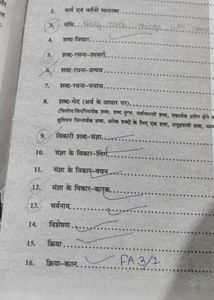 2. वर्ण एवं वर्तनी व्यवस्था
3. संधि
4. शब्द-विचार
5. शब्द-रचना-उपसर्ग
6. शब्द-रचना-प्रत्यय
7. शब्द-रचना-समास
8. शब्द-भेद (अर्थ के आधार पर)
9. विकारी शब्द-संज्ञा
10. संज्ञा के विकार-लिंग
11. संज्ञा के विकार-वचन
12. संज्ञा के विकार-कारक
13. सर्वनाम
14. विशेषण
15. क्रिया
16. क्रिया-काल FA 3/1